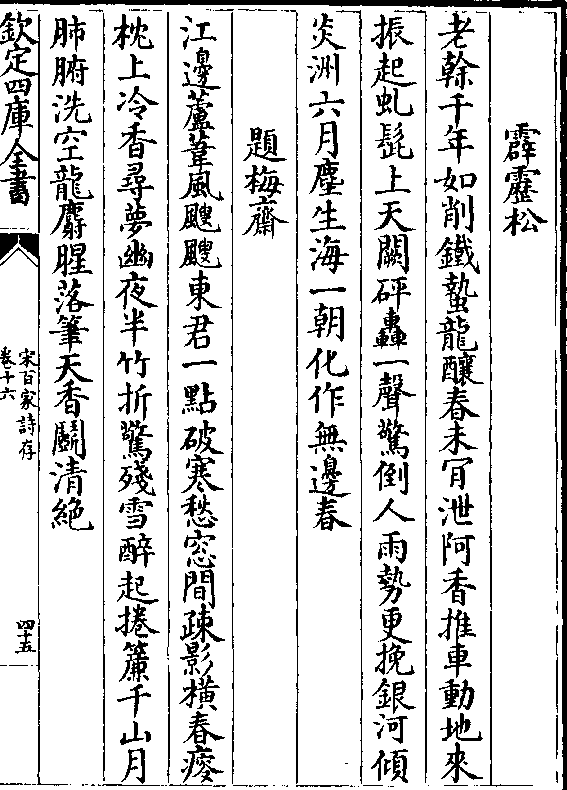 霹靂松
老榦千年如削鐵蟄龍釀春未肎泄阿香推車動地來
振起虬髭上天闕砰轟一聲驚倒人雨勢更挽銀河傾
炎洲六月塵生海一朝化作無邊春
題梅齋
江邊蘆葦風颼颼東君一點破寒愁窓間疎影横春瘦
枕上冷香尋夢幽夜半竹折驚殘雪醉起捲簾千山月
肺腑洗空龍麝腥落筆天香鬭清絶
欽定四庫全書
宋百家詩存
卷十六
四十五